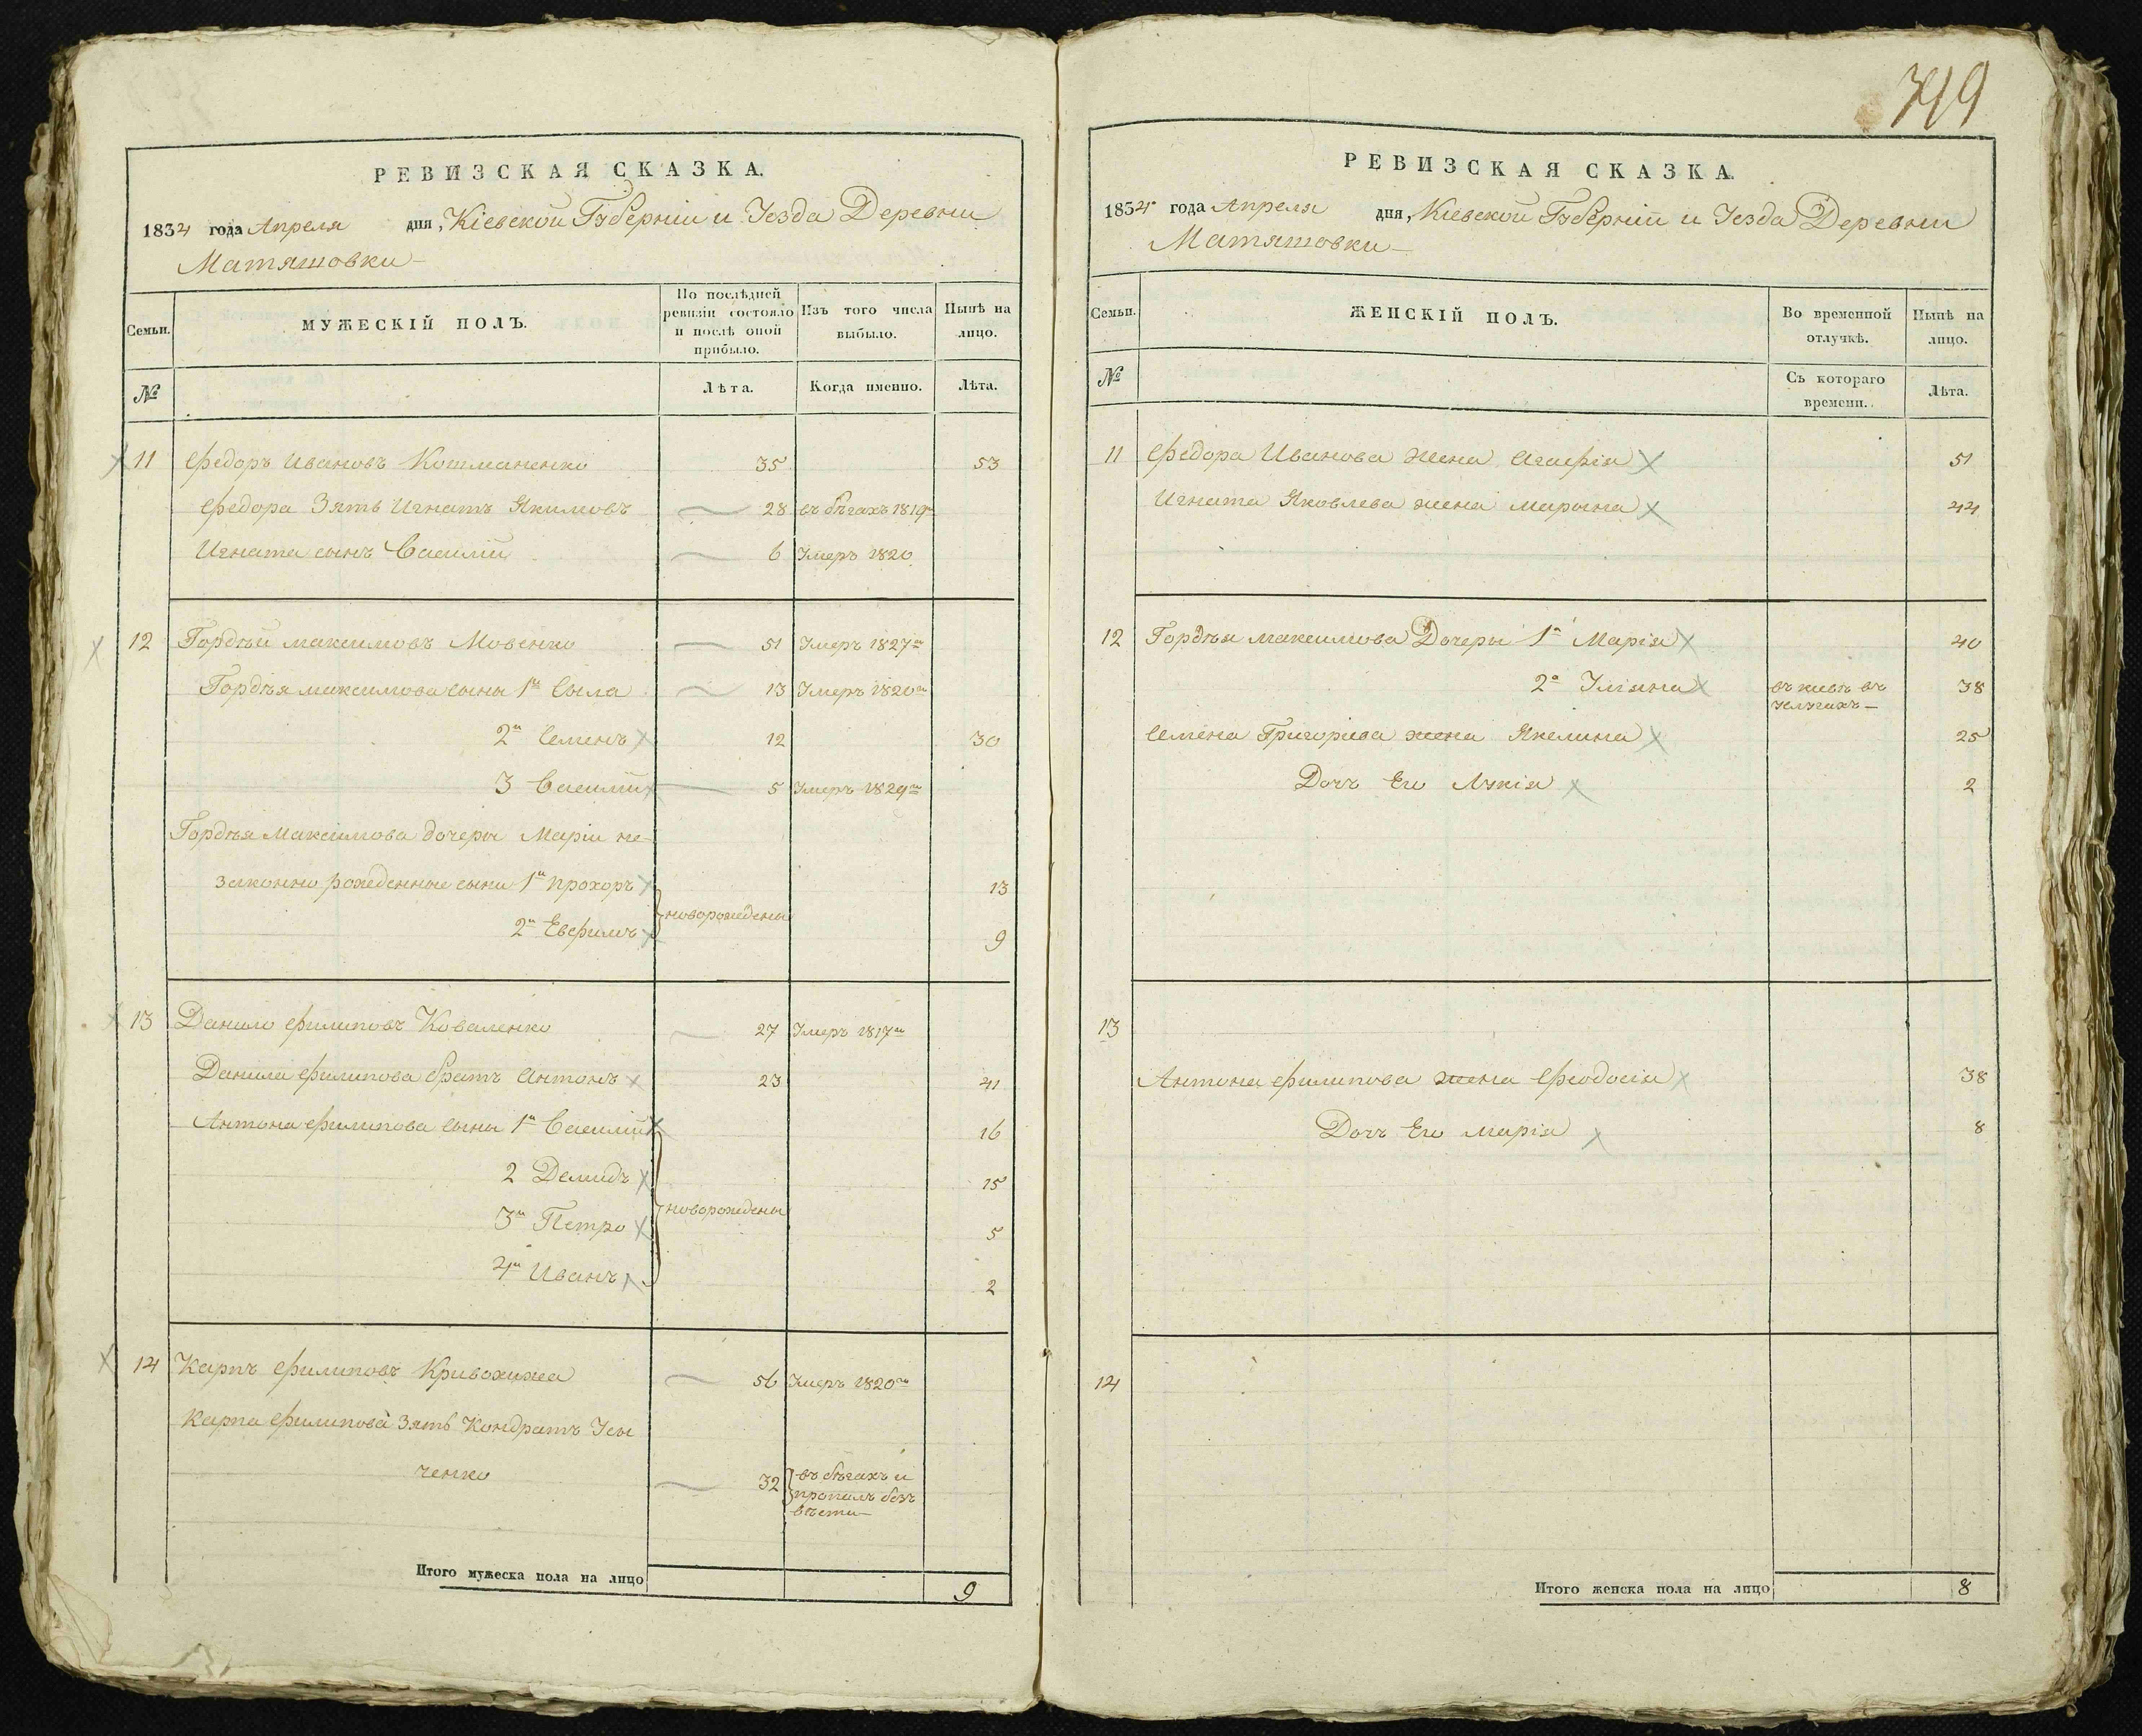 РЕВИЗСКАЯ СКАЗКА.
1834 года Апреля дня, Кіевской Губерніи и Уезда Деревни
Матяшовки
Семьи.
МУЖЕСКІЙ ПОЛЪ.
По послѣдней
ревизіи состояло
и послѣ оной
прибыло.
Изъ того числа
выбыло.
Нынѣ на
лицо.
№
Лѣта.
Когда именно.
Лѣта.
11 Федоръ Ивановъ 35 53
Федора Зять Игнатъ Якимовъ 28 въ бѣгахъ 1819
Игната сынъ Василій 6 Умеръ 1820
12 Гордѣй Максимовъ Мовенко 51 Умеръ 1827го
Гордѣя Максимова сыны 1й Сыла 13 Умеръ 1820го
2й Семенъ 12 30
3 Василій 5 Умеръ 1829го
Гордѣя Максимова дочеры Маріи не
законно рожденные сыны 1й Прохоръ 13
новорождены
2й Евфимъ 9
13 Данило Филиповъ Коваленко 27 Умеръ 1817го
Данила Филипова братъ Антонъ 23 41
Антона Филипова сыны 1й Василій 16
2 Демидъ 15
новорождены
3й Петро 5
4й Иванъ 2
14 Карпъ Филиповъ Кривохижа 56 Умеръ 1820го
Карпа Филипова Зять Кондратъ
ченко 32 въ бѣгахъ и
пропалъ безъ
вѣсти
Итого мужеска пола на лицо 9
РЕВИЗСКАЯ СКАЗКА.
1834 года Апреля дня, Кіевской Губерніи и Уезда Деревни
Матяшовки
Семьи.
ЖЕНСКІЙ ПОЛЪ.
Во временной
отлучкѣ.
Нынѣ на
лицо.
№
Съ котораго
времени.
Лѣта.
11 Федора Иванова жена Агафія 51
Игната Яковлева жена Марына 44
12 Гордѣя Максимова Дочеры 1я Марія 40
2я Уліяна въ киевѣ въ 38
услугахъ
Семена Григоріева жена Якелина 25
Дочъ Его Лукія 2
13
Антона Филипова жена Феодосія 38
Дочъ Его Марія 8
14
Итого женска пола на лицо 8